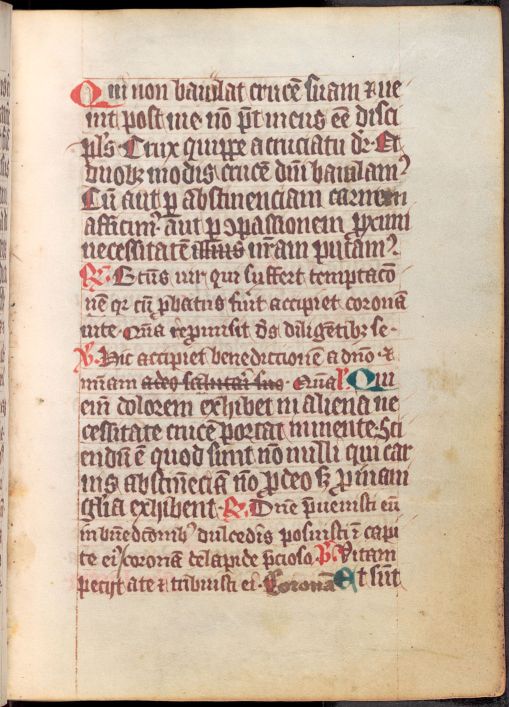 Qui non baiulat crucē suam ⁊ ue
nit post me nō p̄t meus eē disci
pl's. Crux quippe a cruciatu dr̄. Et
duobꝫ modis crucē dn̄i baiulam᾽
Cū aut ꝑ abstinenciam carnem
afficim᾽. aut ꝑ ꝯpassionem ꝓximi
necessitatē illius nr̄am putam᾽.
R̄. Btūs uir qui suffert temptacō
nē qr cū ꝓbatus fūit accipiet coronā
uite. Quā repmisit ds̄ diligētibꝫ se.
V̄. Hic accipiet benedictionē a dn̄o. ⁊
miam adeo salutari suo. Quā. Qui
em̄ dolorem exhibet in aliena ne
cessitate crucē portat in mente. Sci
endū ē quod sunt nō nulli qui car
nis abstinēciā nō ꝓ deo sꝫ ꝓ inani
gl̄ia exhibent. R̄. Dn̄e p̄uenisti eū
in bn̄edcōnibꝰ dulcedīs posuisti ī capi
te ei᾽ coronā de lapide p̄cioso. V̄. Vitam
pecijt a te ⁊ tribuisti ei. Coronā Et sūt